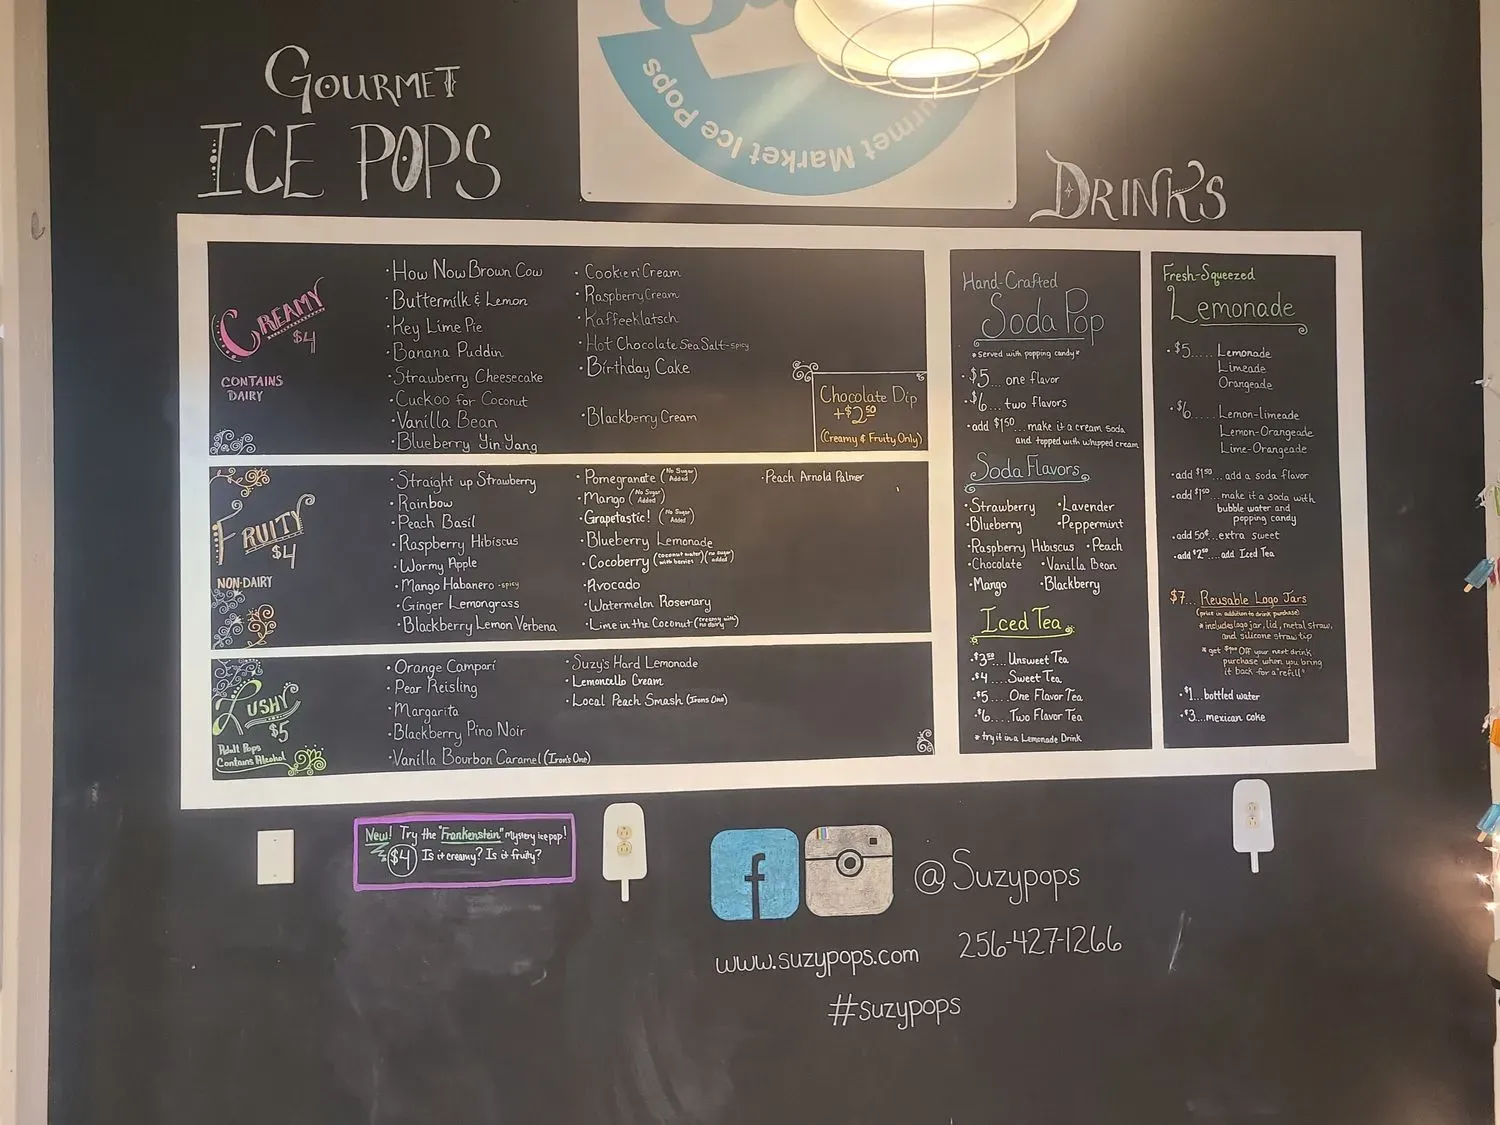 Gourmet
ICE POPS
Gourmet Market Ice Pops
DRINKS
CREAMY
$4
CONTAINS
DAIRY
· How Now Brown Cow
· Buttermilk & Lemon
· Key Lime Pie
· Banana Puddin
· Strawberry Cheesecake
· Cuckoo for Coconut
· Vanilla Bean
· Blueberry Yin Yang
· Cookie n' Cream
· Raspberry Cream
· Kaffeeklatsch
· Hot Chocolate Sea Salt -spicy
· Birthday Cake
· Blackberry Cream
Chocolate Dip
+$2.50
(Creamy & Fruity Only)
FRUITY
$4
NON-DAIRY
· Straight up Strawberry
· Rainbow
· Peach Basil
· Raspberry Hibiscus
· Wormy Apple
· Mango Habanero -spicy
· Ginger Lemongrass
· Blackberry Lemon Verbena
· Pomegranate (No Sugar Added)
· Mango (No Sugar Added)
· Grapetastic! (No Sugar Added)
· Blueberry Lemonade
· Cocoberry (coconut water with berries) (no sugar added)
· Avocado
· Watermelon Rosemary
· Lime in the Coconut (creamy with no dairy)
· Peach Arnold Palmer
LUSHY
$5
Adult Pops
Contains Alcohol
· Orange Campari
· Pear Reisling
· Margarita
· Blackberry Pino Noir
· Vanilla Bourbon Caramel (Iron's One)
· Suzy's Hard Lemonade
· Lemoncello Cream
· Local Peach Smash (Irons One)
Hand-Crafted
Soda Pop
*Served with popping candy*
· $5... one flavor
· $6... two flavors
· add $1.50... make it a cream soda
and topped with whipped cream
Soda Flavors
· Strawberry · Lavender
· Blueberry · Peppermint
· Raspberry Hibiscus · Peach
· Chocolate · Vanilla Bean
· Mango · Blackberry
Iced Tea
· $3.50.... Unsweet Tea
· $4.... Sweet Tea
· $5.... One Flavor Tea
· $6.... Two Flavor Tea
* try it in a Lemonade Drink
Fresh-Squeezed
Lemonade
· $5..... Lemonade
Limeade
Orangeade
· $6..... Lemon-limeade
Lemon-Orangeade
Lime-Orangeade
· add $1.50... add a soda flavor
· add $1.50... make it a soda with
bubble water and
popping candy
· add 50¢... extra sweet
· add $2.50.... add Iced Tea
$7... Reusable Logo Jars
(price in addition to drink purchase)
* includes logo jar, lid, metal straw,
and silicone straw tip
* get $1.00 Off your next drink
purchase when you bring
it back for a "refill"
· $1... bottled water
· $3... mexican coke
New! Try the "Frankenstein" mystery ice pop!
$4 Is it creamy? Is it fruity?
f
@Suzypops
www.suzypops.com 256-427-1266
#suzypops